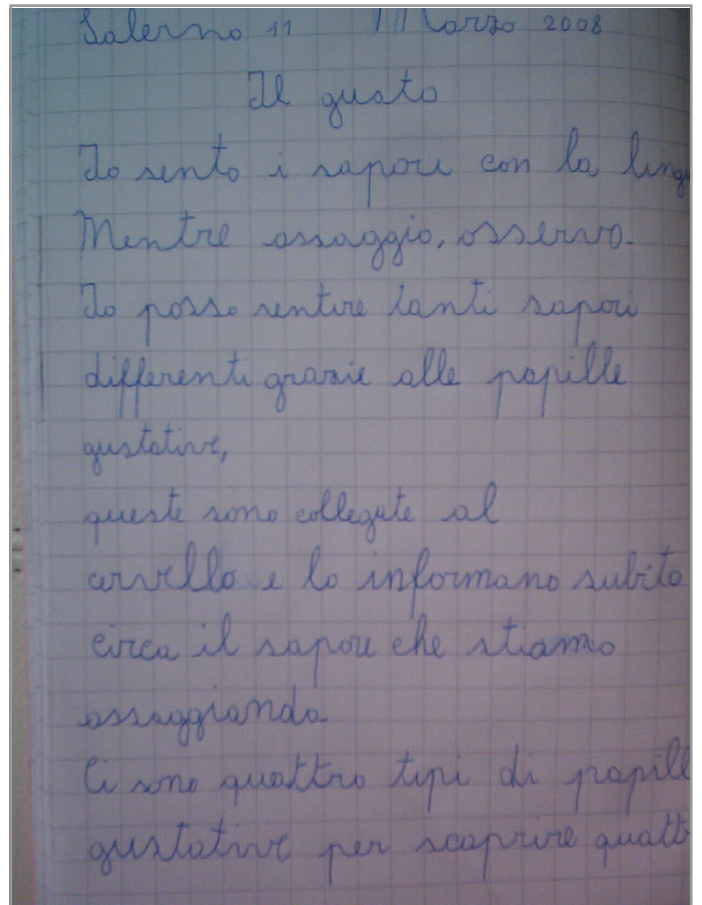 Salerno 11 Marzo 2008
Il gusto
Io sento i sapori con la lingu
Mentre assaggio, osservo.
Io posso sentire tanti sapori
differenti grazie alle papille
gustative,
queste sono collegate al
cervello e lo informano subito
circa il sapore che stiamo
assaggiando
Ci sono quattro tipi di papill
gustative per scoprire quatt